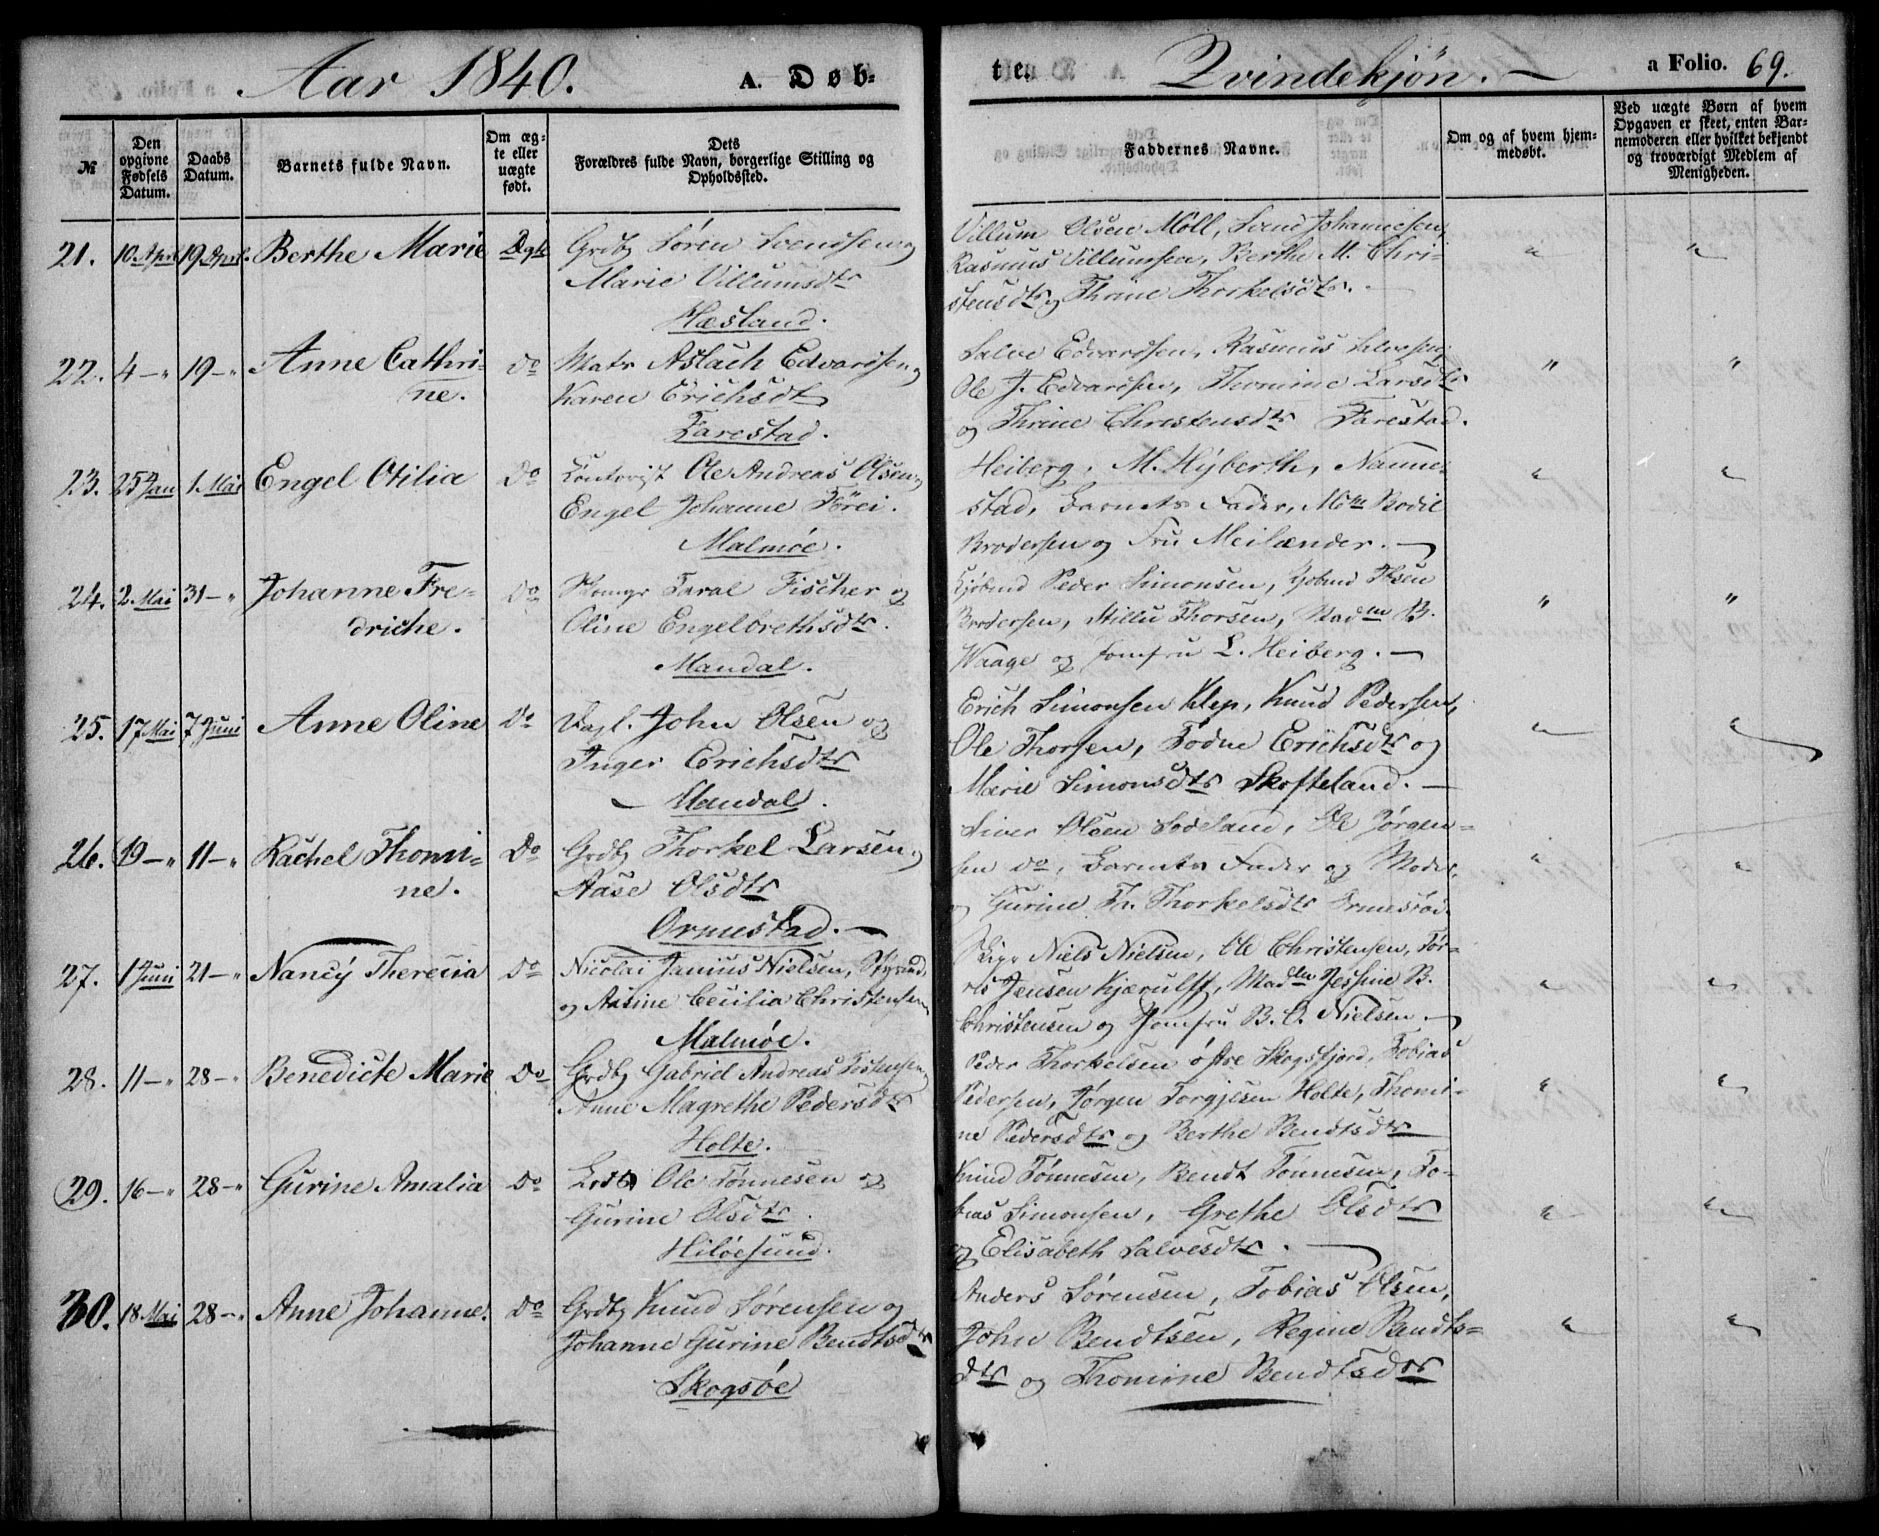 Aar 1840. A. Døb-
te. Qvindekjøn. a Folio. 69.
№
Den opgivne Fødsels Datum.
Daabs Datum.
Barnets fulde Navn.
Om ægte eller uægte født.
Dets
Forældres fulde Navn, borgerlige Stilling og
Opholdssted.
Faddernes Navne.
Om og af hvem hjem-
medøbt.
Ved uægte Børn af hvem
Opgaven er skeet, enten Bar-
nemoderen eller hvilket bekjendt
og troværdigt Medlem af
Menigheden.
21. 10 April 19 April. Berthe Marie Ægte Grdbr Søren Svendsen og
Marie Villumsdtr
Hæsland.
Villum Olsen Møll, Svend Johannesen,
Rasmus Villumsen, Berthe M. Chri-
stensdtr og Thrine Thorkelsdtr. " "
22. 4 - " 19 - " Anne Cathri-
ne. do Matr Aslach Edvardsen og
Karen Erichsdtr
Farestad.
Salve Edvardsen, Rasmus
Ole J. Edvardsen, Thomine Larsdtr
og Thrine Christensdtr Farestad. " "
23. 25 Jan 1. Mai Engel Otilia do Contorist Ole Andreas Olsen og
Engel Johanne Tørei.
Malmøe.
Heiberg, M. Hÿberth, Nanne-
stad, Barnets Fader, Mdm Bodil
Brodersen og Fru Meilænder. " "
24. 2 Mai 31 - " Johanne Fre-
driche. do Skomgr Taral Fischer og
Oline Engelbrethsdtr.
Mandal.
Kjøbmd Peder Simonsen, Gjobmd Ibsen
Brodersen, Thorsen, Madm B.
Waage og Jomfru L. Heiberg. " "
25. 17 Mai 7 Juni Anne Oline do Dagl. John Olsen og
Inger Erichsdtr
Mandal.
Erich Simonsen Klep, Knud Pedersen,
Ole Thorsen, Todne Erichsdtr og
Marie Simonsdtr Skofteland. " "
26. 19 - " 11 - " Rachel Thomi-
ne. do Grdbr Thorkel Larsen og
Aase Olsdtr
Ormestad.
Siver Olsen Sodeland, Ole Jørgen-
sen do, Barnets Fader og Moder,
og Gurine Th. Thorkelsdtr Ormestad. " "
27. 1 Juni 21 - " Nancÿ Theresia do Nicolai Janius Nielsen, Styrmd,
og Aasine Cecilia Christensen
Malmøe.
Skipr Niels Nielsen, Ole Christensen, Tør-
res Jensen Kjærulff, Madm Jessine B.
Christensen og Jomfru B. O. Nielsen. " "
28. 11 - " 28 - " Benedicte Marie do Grdbr Gabriel Andreas Tostensen og
Anne Magrethe Pedersdtr
Holte.
Peder Thorkelsen østre Skogsfjord, Tobias
Pedersen, Jørgen Torgjesen Holte, Thomi-
ne Pedersdtr og Berthe Bendtsdtr " "
29. 16 - " 28 - " Gurine Amalia do Ole Tønnesen og
Gurine Olsdtr.
Hiløesund.
Knud Tønnesen, Bendt Tønnesen, To-
bias Simonsen, Grethe Olsdtr
og Elisabeth Salvesdtr. " "
30. 18 Mai 28 - " Anne Johanne. do Grdbr Knud Sørensen og
Johanne Gurine Bendtsdtr
Skogsøe
Anders Sørensen, Tobias Olsen,
John Bendtsen, Regine Bendts-
dtr og Thomine Bendtsdtr " "